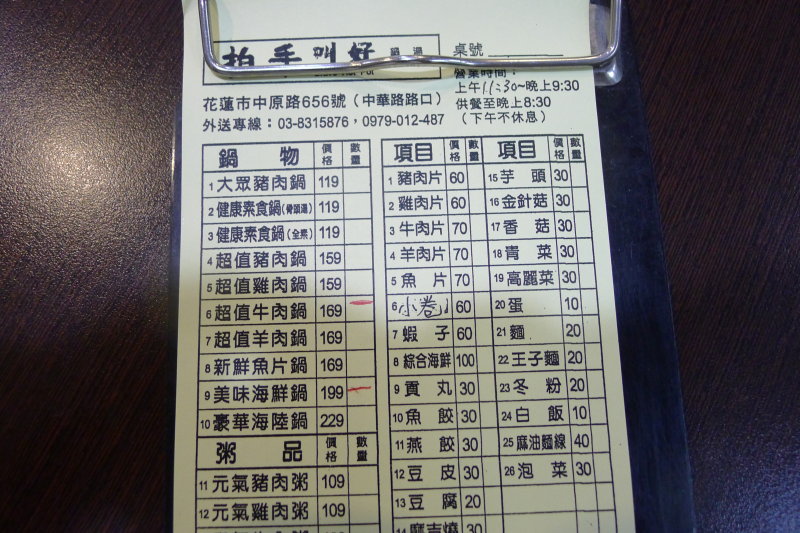 拍手叫好 鍋湯
桌號
營業時間：
上午11:30~晚上9:30
供餐至晚上8:30
（下午不休息）
花蓮市中原路656號（中華路路口）
外送專線：03-8315876，0979-012-487
鍋物 價格 數量
1 大眾豬肉鍋 119
2 健康素食鍋(骨頭湯) 119
3 健康素食鍋(全素) 119
4 超值豬肉鍋 159
5 超值雞肉鍋 159
6 超值牛肉鍋 169
7 超值羊肉鍋 169
8 新鮮魚片鍋 169
9 美味海鮮鍋 199
10 豪華海陸鍋 229
粥品 價格 數量
11 元氣豬肉粥 109
12 元氣雞肉粥 109
項目 價格 數量
1 豬肉片 60
2 雞肉片 60
3 牛肉片 70
4 羊肉片 70
5 魚片 70
6 小卷 60
7 蝦子 60
8 綜合海鮮 100
9 貢丸 30
10 魚餃 30
11 燕餃 30
12 豆皮 30
13 豆腐 20
14 麻吉燒 30
項目 價格 數量
15 芋頭 30
16 金針菇 30
17 香菇 30
18 青菜 30
19 高麗菜 30
20 蛋 10
21 麵 20
22 王子麵 20
23 冬粉 20
24 白飯 10
25 麻油麵線 40
26 泡菜 30